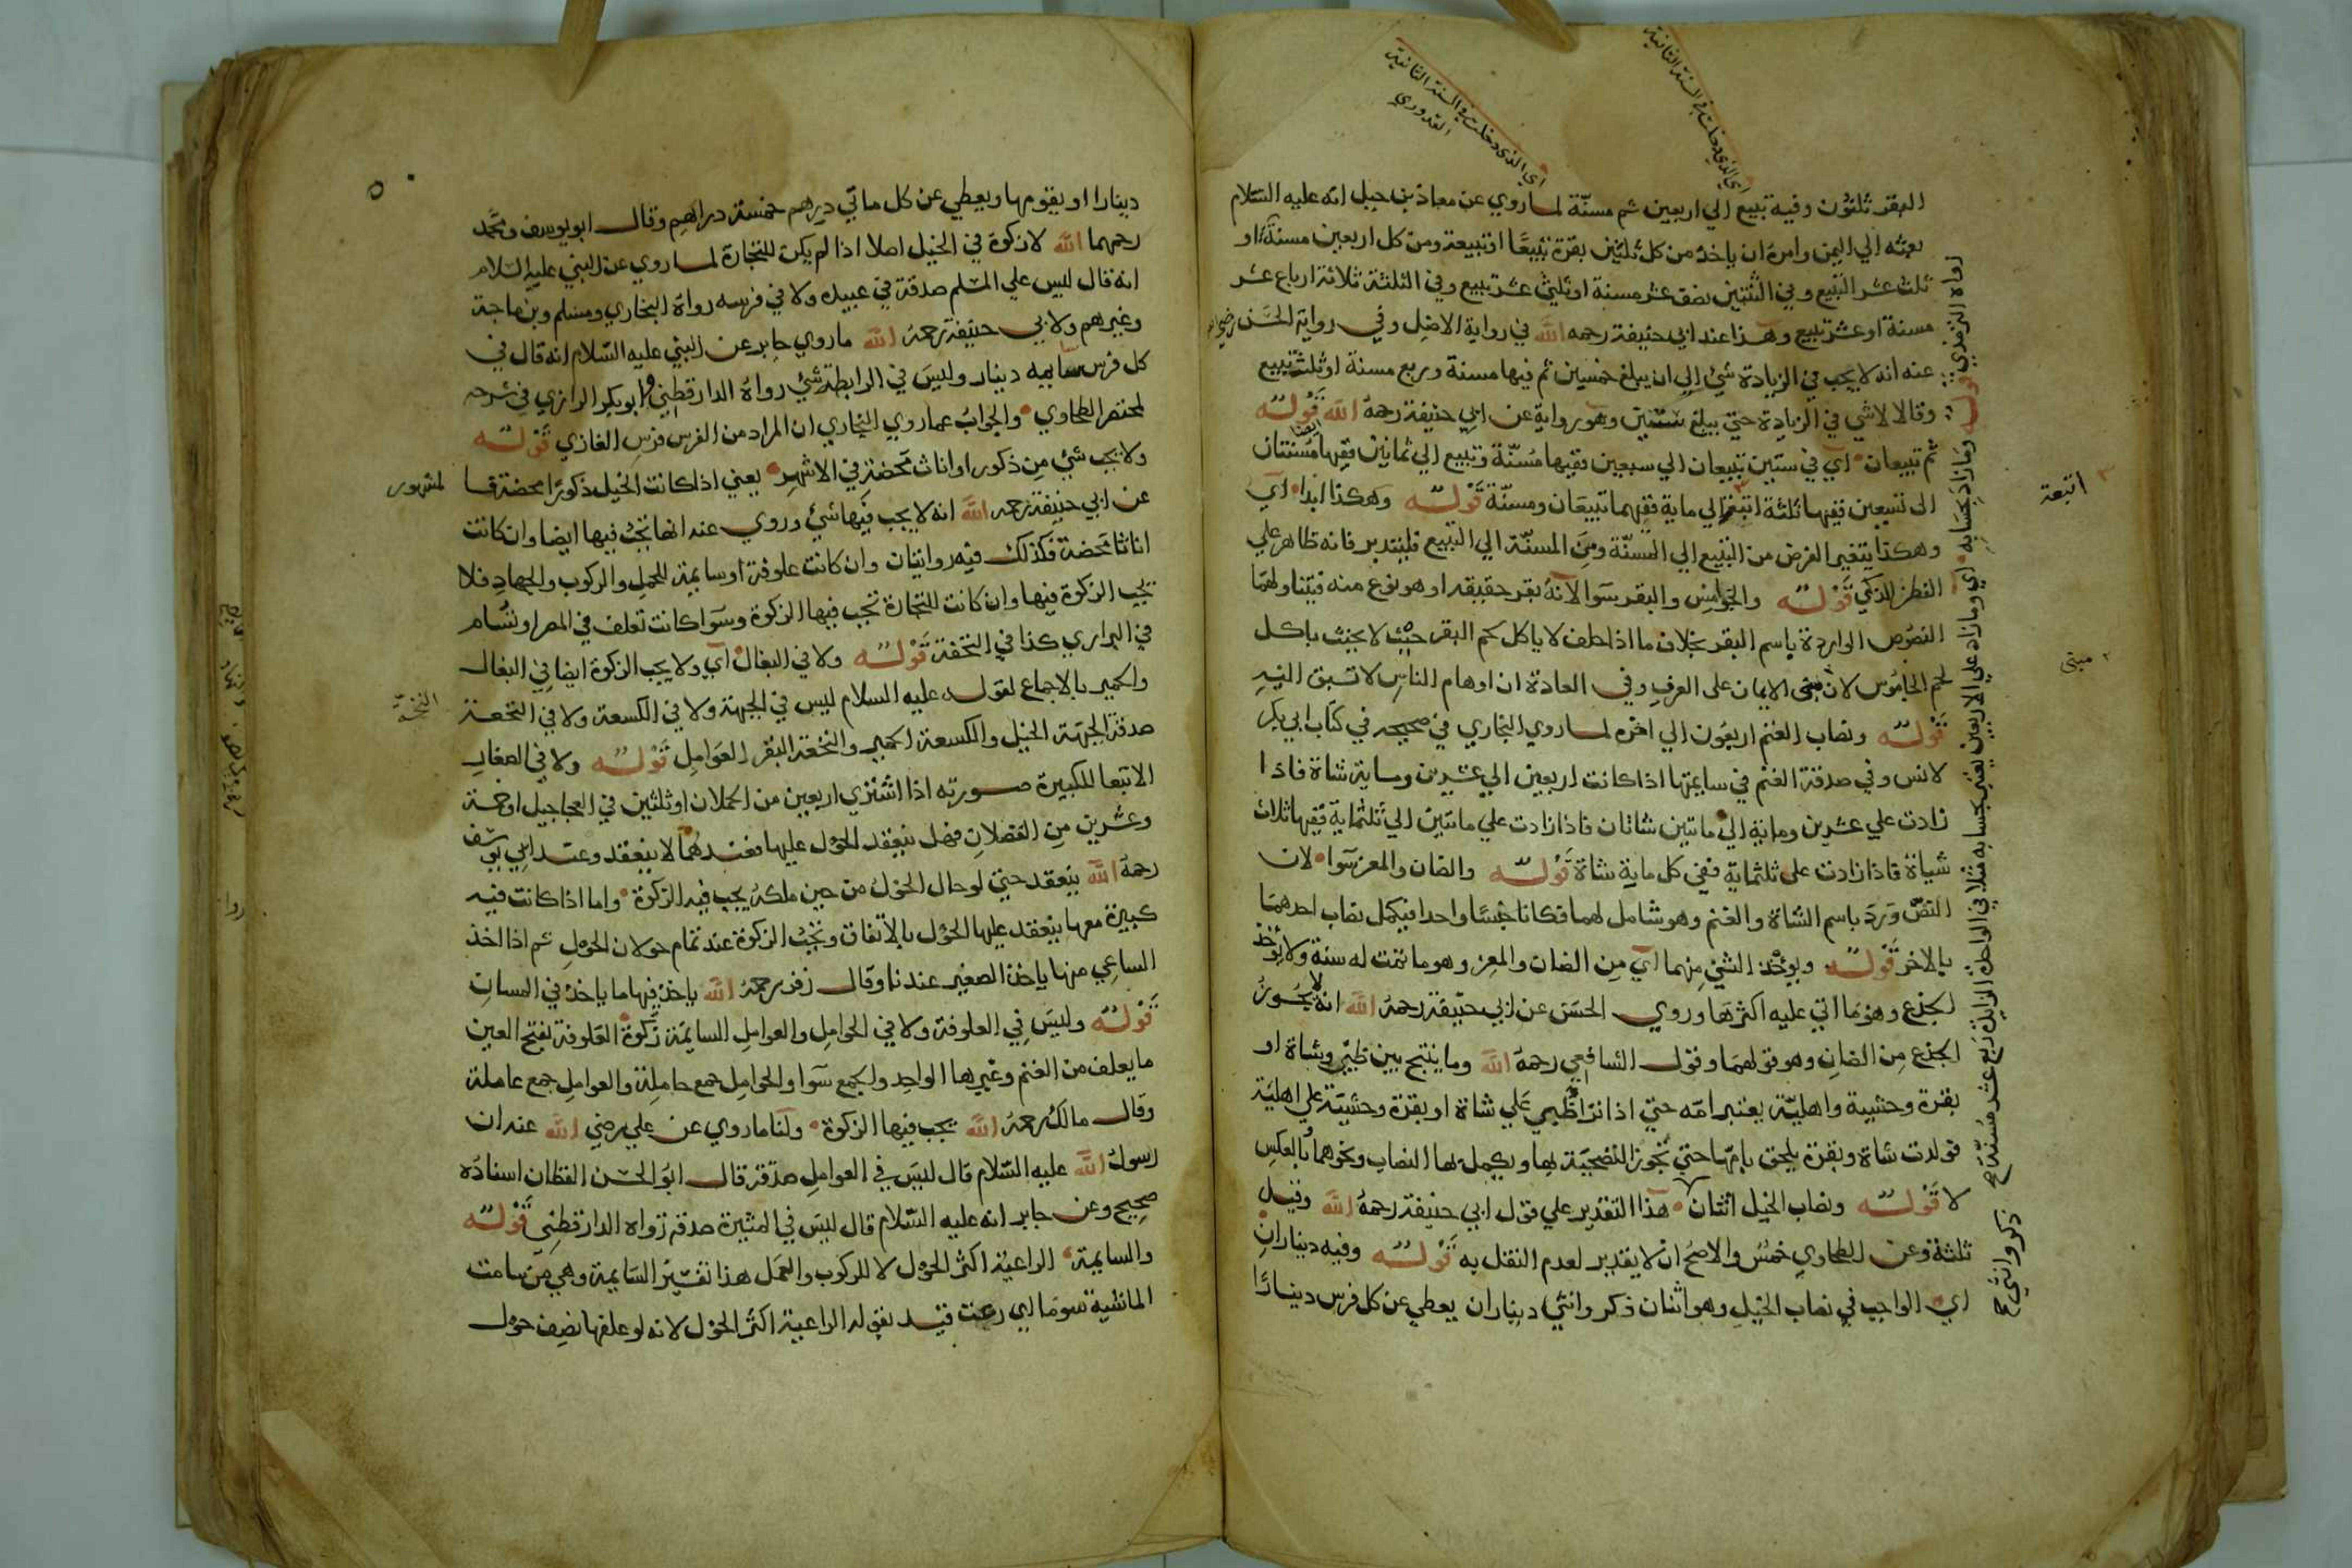 البقر ثلثون وفيه تبيع الي اربعين ثم مسنّة لما روي عن معاذ بن جبل انه عليه السّلام
بعثه الي اليمن وامره ان ياخذ من كل ثلثين بقرة تبيعًا او تبيعة ومن كل اربعين مسنة او
ثلث عشر التبيع وفي الثنتين نصف عشر مسنة او ثلثي عشر تبيع وفي الثلثة ثلاثة ارباع عشر
مسنة او عشر تبيع وهذا عند ابي حنيفة رحمه الله في رواية الاصل وفي رواية الحسن
عنه انه لا يجب في الزيادة شئ الي ان يبلغ خمسين ثم فيها مسنة وربع مسنة او ثلث تبيع
وقالا لا شي في الزيادة حتي يبلغ ستين وهو رواية عن ابي حنيفة رحمه الله قوله
ثم تبيعان اي في ستين تبيعان الي سبعين ففيها مسنّة وتبيع الي ثمانين ففيها مسنتان
الى تسعين ففيها ثلثة اتبعة الي ماية ففيها تبيعان ومسنّة قوله وهكذا ابدا اي
وهكذا يتغير الفرض من التبيع الي المسنّة ومن المسنّة الي التبيع فليتدبر فانه ظاهر علي
الفطن الذكي قوله والجواميس والبقر سوا لانه بقر حقيقه او هو نوع منه فيتناولهما
النصوص الواردة باسم البقر بخلاف ما اذا حلف لا ياكل لحم البقر حيث لا يحنث باكل
لحم الجاموس لان مبنى الايمان على العرف وفي العادة ان اوهام الناس لا تسبق اليه
قوله ونصاب الغنم اربعون الي اخره لما روي البخاري في صحيحه في كتاب ابي بكر
لانس وفي صدقة الغنم في سايمتها اذا كانت اربعين الي عشرين وماية شاة فاذا
زادت علي عشرين وماية الي ماتين شاتان فاذا زادت علي ماتين الي ثلثماية ففيها ثلاث
شياة فاذا زادت على ثلثماية ففي كل ماية شاة قوله والضان والمعز سوا لان
النصّ ورد باسم الشاة والغنم وهو شامل لهما فكانا جنسًا واحدا فيكمل نصاب احدهما
بالاخر قوله ويوخذ الثني منهما اي من الضان والمعز وهو ما تمت له سنة ولا يوخذ
الجذع وهو ما اتي عليه اكثرها وروي الحسن عن ابي حنيفة رحمه الله انه لا يجوز
الجذع من الضان وهو قولهما وقول الشافعي رحمه الله وما ينتج بين ظبي وشاة او
بقرة وحشية واهليّة يعتبر امّه حتي اذا نزا ظبي علي شاة او بقرة وحشيّة علي اهليّة
فولدت شاة وبقرة يلحق بامّها حتي تجوز التضحيّة بها ويكمل بها النصاب ونحوهما بالعكس
لا قوله ونصاب الخيل اثنان هذا التقدير علي قول ابي حنيفة رحمه الله وقيل
ثلثة وعن الطحاوي خمس والاصح ان لا يقدر لعدم النقل به قوله وفيه ديناران
اي الواجب في نصاب الخيل وهو اثنان ذكر وانثي ديناران يعطي عن كل فرس دينارًا
اي الذي دخلت في السنة الثانية
القدوري
اي الذي دخلت في السنة الثانية
رواه الترمذي قوله وما زاد بحسابه اي وما زاد علي الاربعين يعني بحسابه مثلا في الواحدة الزايدة ربع عشر مسنة
ذكر وانثي
اتبعة
مبنى
دينارا او يقومها ويعطي عن كل ماتي درهم خمسة دراهم وقال ابو يوسف ومحمد
رحمهما الله لا زكوة في الخيل اصلا اذا لم يكن للتجارة لما روي عن النبي عليه السلام
انه قال ليس علي المسلم صدقة في عبيده ولا في فرسه رواه البخاري ومسلم وبن ماجة
وغيرهم ولابي حنيفة رحمه الله ما روي جابر عن النبي عليه السّلام انه قال في
كل فرس سايمة دينار وليس في الرابطة شئ رواه الدارقطني وابوبكر الرازي في شرحه
لمختصر الطحاوي والجواب عما روي البخاري ان المراد من الفرس فرس الغازي قوله
ولا يجب شئ من ذكور او اناث محضة في الاشهر يعني اذا كانت الخيل ذكورًا محضة فالمشهور
عن ابي حنيفة رحمه الله انه لا يجب فيها شئ وروي عنه انها تجب فيها ايضا وان كانت
اناثا محضة فكذلك فيه روايتان وان كانت علوفة او سايمة للحمل والركوب والجهاد فلا
تجب الزكوة فيها وان كانت للتجارة تجب فيها الزكوة وسوا كانت تعلف في المصر او تسام
في البراري كذا في التحفة قوله ولا في البغال اي ولا يجب الزكوة ايضا في البغال
والحمير بالاجماع لقوله عليه السلام ليس في الجبهة ولا في الكسعة ولا في النخة
صدقة الجبهة الخيل والكسعة الحمير والنخة البقر العوامل قوله ولا في الصغار
الا تبعا للكبيرة صورته اذا اشتري اربعين من الحملان او ثلثين في العجاجيل او خمسة
وعشرين من الفصلان فهل ينعقد الحول عليها فعندهما لا ينعقد وعند ابي يوسف
رحمه الله ينعقد حتي لو حال الحول من حين ملكه يجب فيه الزكوة واما اذا كانت فيه
كبيرة معها ينعقد عليها الحول بالاتفاق وتجب الزكوة عند تمام حولان الحول ثم اذا اخذ
الساعي منها ياخذ الصغير عندنا وقال زفر رحمه الله ياخذ فيها ما ياخذ في المسان
قوله وليس في العلوفة ولا في الحوامل والعوامل السايمة زكوة العلوفة بفتح العين
ما يعلف من الغنم وغيرها الواحد والجمع سوا والحوامل جمع حاملة والعوامل جمع عاملة
وقال مالك رحمه الله يجب فيها الزكوة ولنا ما روي عن علي رضي الله عنه ان
رسول الله عليه السّلام قال ليس في العوامل صدقة قال ابو الحسن القطان اسناده
صحيح وعن جابر انه عليه السّلام قال ليس في المثيرة صدقة رواه الدارقطني قوله
والسايمة الراعية اكثر الحول لا للركوب والعمل هذا تفسير السايمة وهي من سامت
الماشية سوما اي رعت قيد بقوله الراعية اكثر الحول لانه لو علفها نصف حول
النخة